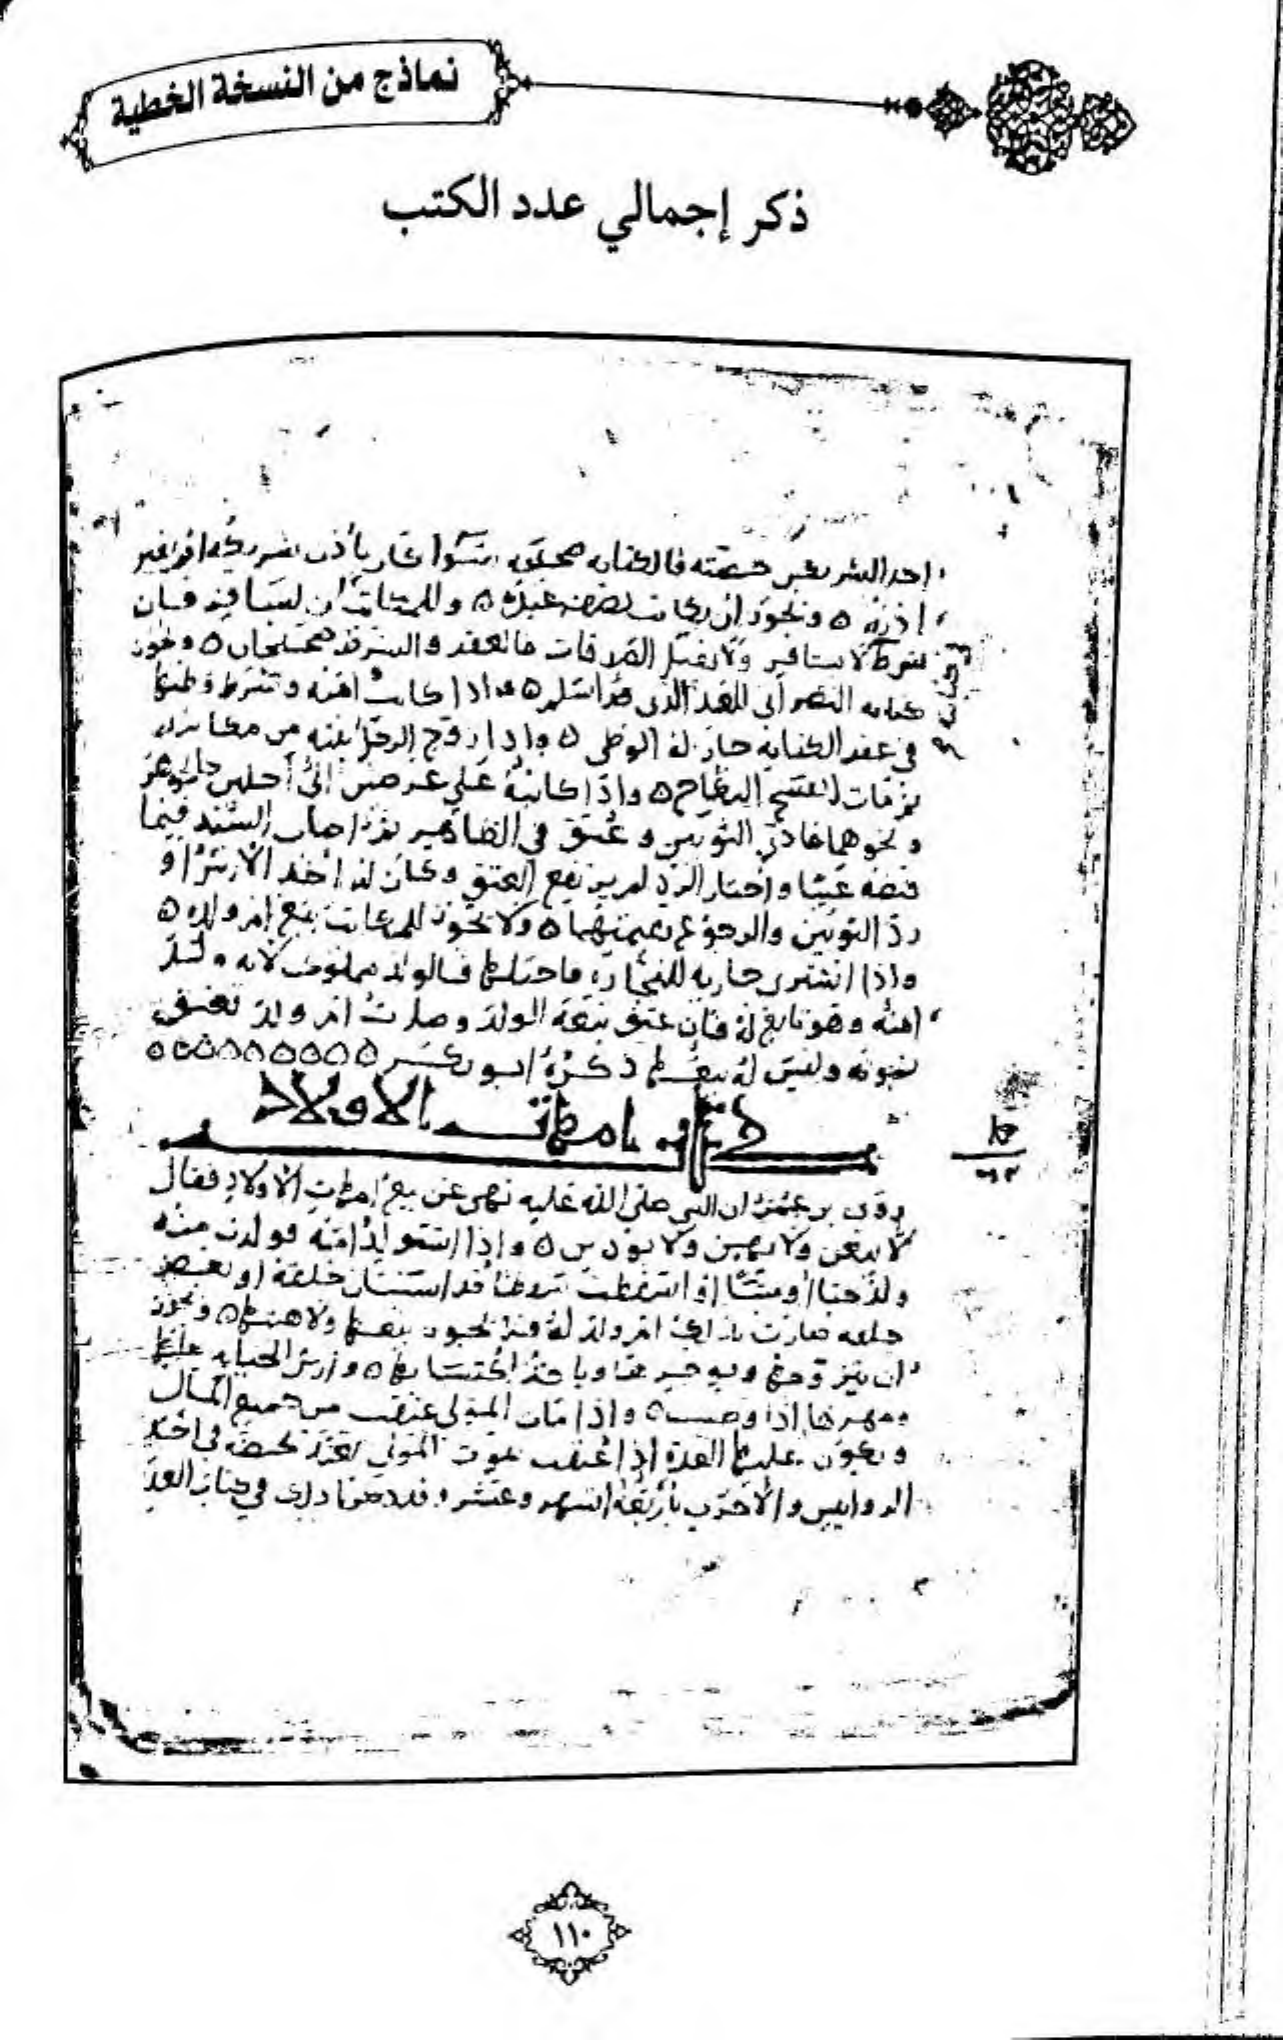 نماذج من النسخة الخطية
ذكر إجمالي عدد الكتب
فالكتابه صحيحه سوا كان باذن شريكه او بغير
اذنه ٥ ويجوز ان يكاتب نصف عبده ٥ وللمكاتب ان يسافر فان
شرط لا يسافر ولا يقبل الصدقات فالعقد والشرط صحيحان ٥ ويجوز
كتابه النصراني للعبد الذي قد اسلم ٥ واذا كاتب امته وشرط وطئها
في عقد الكتابه جاز له الوطى ٥ واذا زوج الرجل ابنته من مكاتبه
ثم مات انفسخ النكاح ٥ واذا كاتبه على عرضين الى اجلين
ونحوهما فادى الثوبين وعتق في الظاهر ثم اصاب السيد فيما
قبضه عيبا واختار الرد لم يرتفع العتق وكان له اخذ الارش او
رد الثوبين والرجوع بقيمتهما ٥ ولا يجوز للمكاتب بيع ام ولده ٥
واذا اشترى جاريه للتجارة فاحبلها فالولد مملوك لانه ولد
امته وهو تابع له فان عتق تبعه الولد وصارت ام ولد تعتق
بموته وليس له بيعها ذكره ابو بكر ٥٥٥٥٥٥٥٥٥
كتاب امهات الاولاد
روى بن عمر ان النبي صلى الله عليه نهى عن بيع امهات الاولاد فقال
لا يبعن ولا يوهبن ولا يورثن ٥ واذا استولد امته فولدت منه
ولدا حيا او ميتا او اسقطت سقطا قد استبان خلقه او بعض
خلقه صارت بذلك ام ولد له فلا يجوز بيعها ولا هبتها ٥ ويجوز
ان يزوجها ويوجرها وياخذ اكتسابها ٥ وارش الجنايه عليها
ومهرها اذا وجب ٥ واذا مات المولى عتقت من جميع المال
ويكون عليها العدة اذا عتقت بموت المولى تعتد بحيضه في احد
الروايتين والاخرى باربعة اشهر وعشر وقد ذكرنا ذلك في كتاب العدد
١١٠